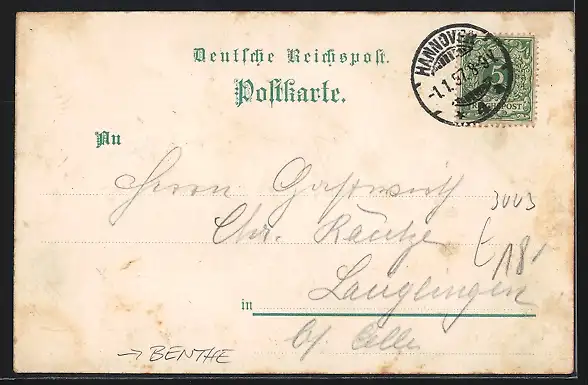 Deutsche Reichspost.
Postkarte.
HANNOVER
-1.1.97. 8-9V.
5
REICHSPOST
An
Herrn Gastwirth
Chr. Käutze
3003
t 18'
in Langlingen
b/ Celle
→ BENTHE